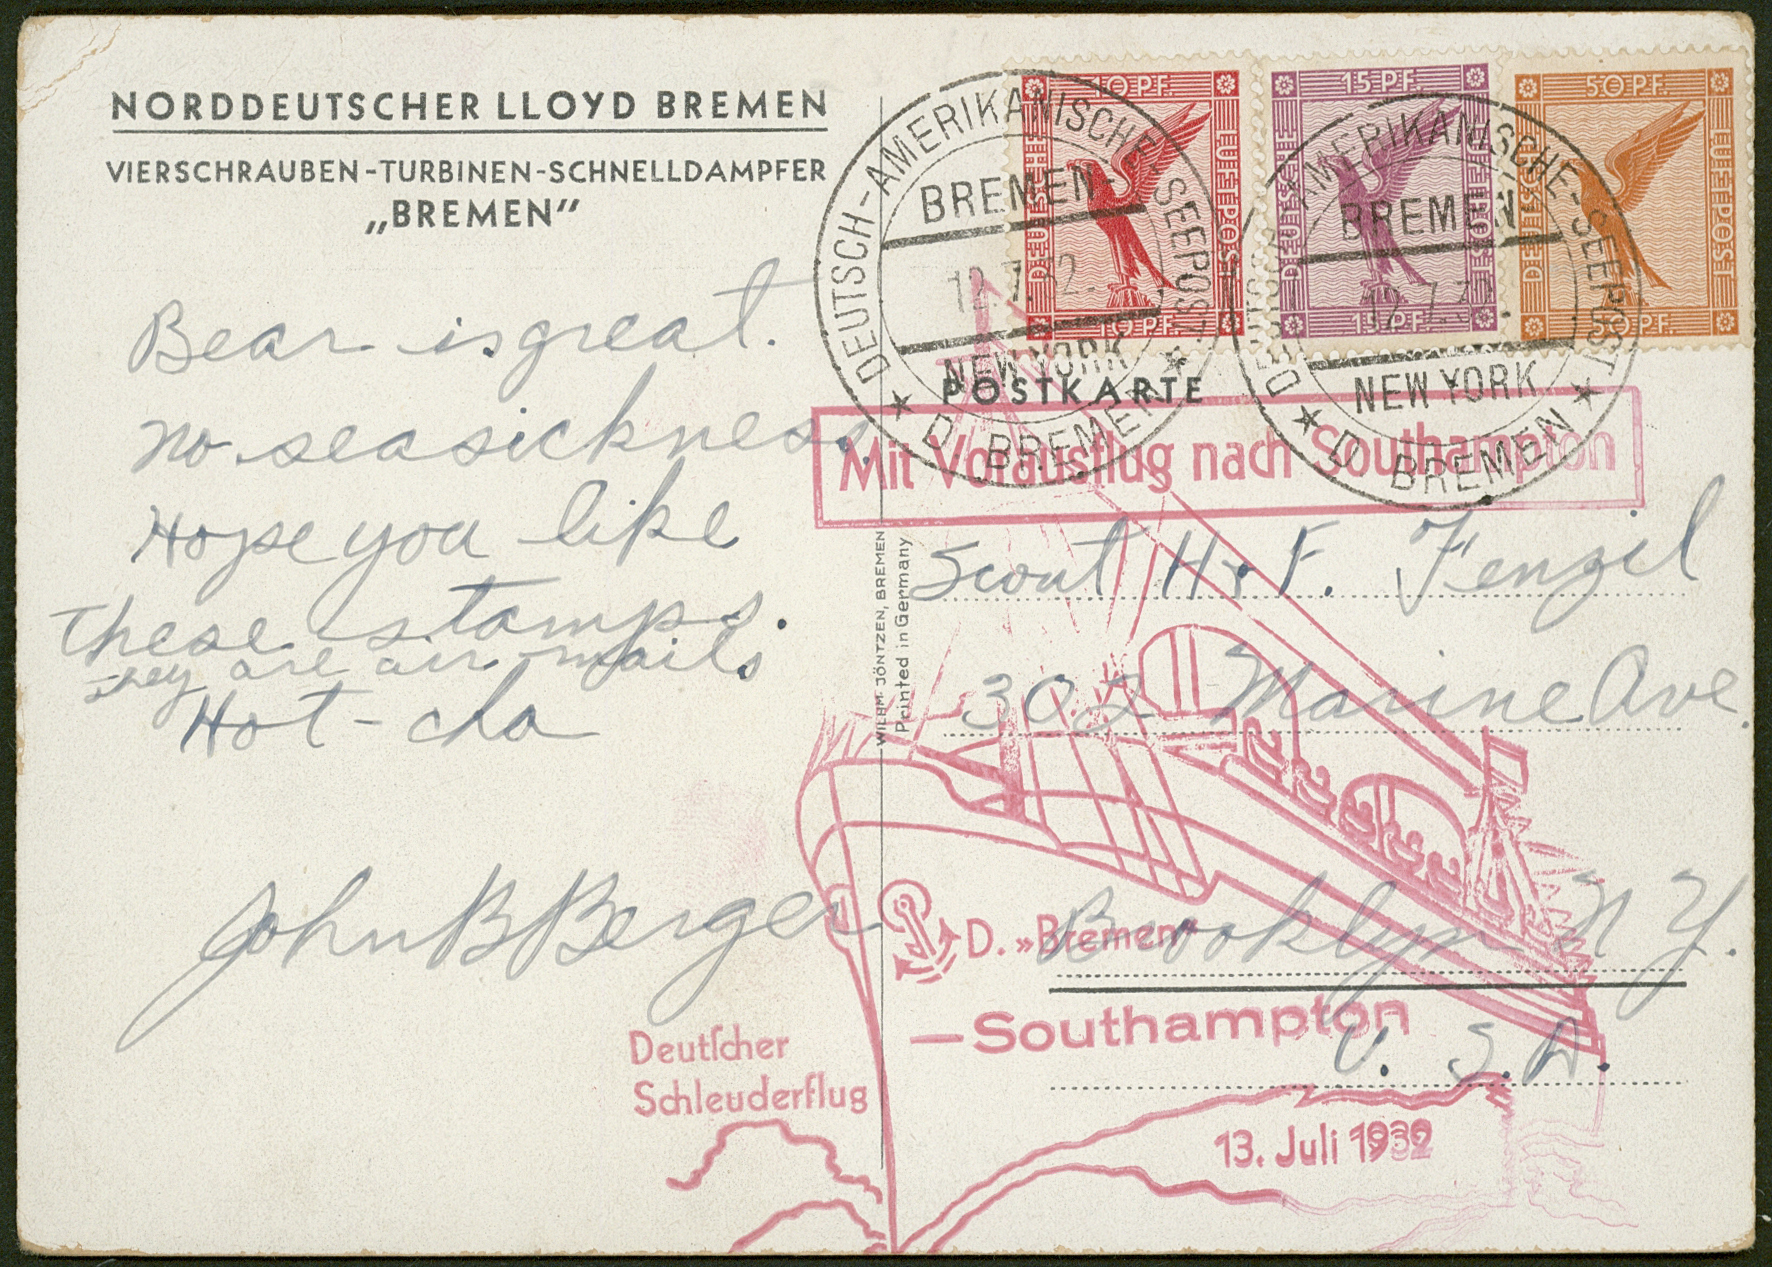 NORDDEUTSCHER LLOYD BREMEN
VIERSCHRAUBEN-TURBINEN-SCHNELLDAMPFER
„BREMEN"
Bear is great.
no seasickness.
Hope you like
these stamps.
They are air mails
Hot-cha
John B Berger
WILHM JÖNTZEN, BREMEN
Printed in Germany
10 PF.
DEUTSCHE LUFTPOST
10 PF.
15 PF.
DEUTSCHE LUFTPOST
15 PF.
50 PF.
DEUTSCHE LUFTPOST
50 PF.
DEUTSCH-AMERIKANISCHE-SEEPOST
BREMEN-
12.7.32.
NEW YORK
D. BREMEN
DEUTSCH-AMERIKANISCHE-SEEPOST
BREMEN-
12.7.32.
NEW YORK
D. BREMEN
POSTKARTE
Mit Vorausflug nach Southampton
Scout H. F. Fenzil
302 Marine Ave.
Brooklyn N Y.
U. S. A.
D. »Bremen«
—Southampton
Deutscher
Schleuderflug
13. Juli 1932